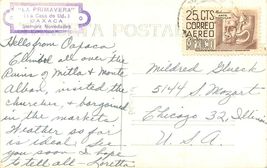 "LA PRIMAVERA"
(La Casa de Ud.)
OAXACA
Siempre Novedades
TARJETA POSTAL
25 CTS
CORREO
AEREO
MEXICO
Hello from Oaxaca
Climbed all over the
Ruins of Mitla & Monte
Alban, visited the
churches, & bargained
in the markets
Weather so far
is ideal. See
you soon I hope
to tell all - Loretta
Mildred Glueck
5144 S Mozart
Chicago 32, Illinois
U. S. A.